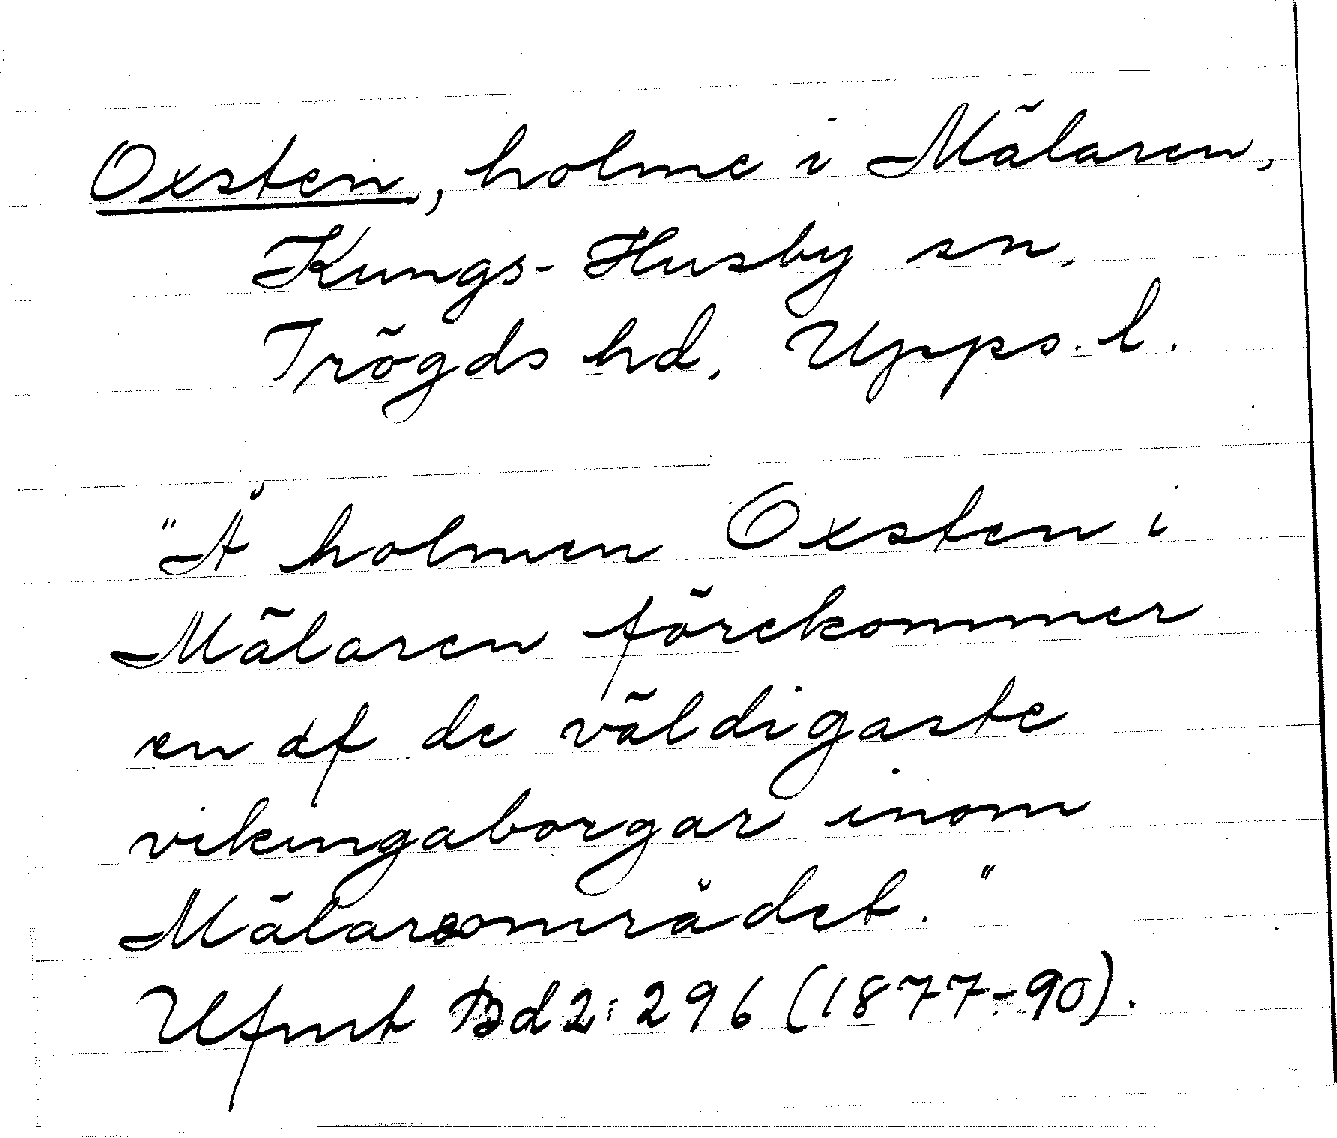 Oxsten, holme i Mälaren,
Kungs-Husby sn.
Trögds hd. Upps. l.
"Å holmen Oxsten i
Mälaren förekommer
en af de väldigaste
vikingaborgar inom
Mälareområdet."
Ufmt Bd 2: 296 (1877-90).